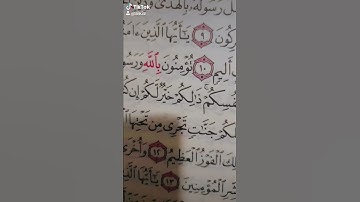 TikTok
رَسُولَهُۥ بِٱلْهُدَىٰ
رِكُونَ ٩ يَٰٓأَيُّهَا ٱلَّذِينَ ءَامَنُ
أَلِيمٍ ١٠ تُؤْمِنُونَ بِٱللَّهِ وَرَسُو
فُسِكُمْ ذَٰلِكُمْ خَيْرٌ لَّكُمْ إِن كُ
كُمْ جَنَّٰتٍ تَجْرِى مِن تَحْتِهَا
لِكَ ٱلْفَوْزُ ٱلْعَظِيمُ ١٢ وَأُخْرَىٰ
شِّرِ ٱلْمُؤْمِنِينَ ١٣ يَٰٓأَيُّهَا ٱلَّذِينَ